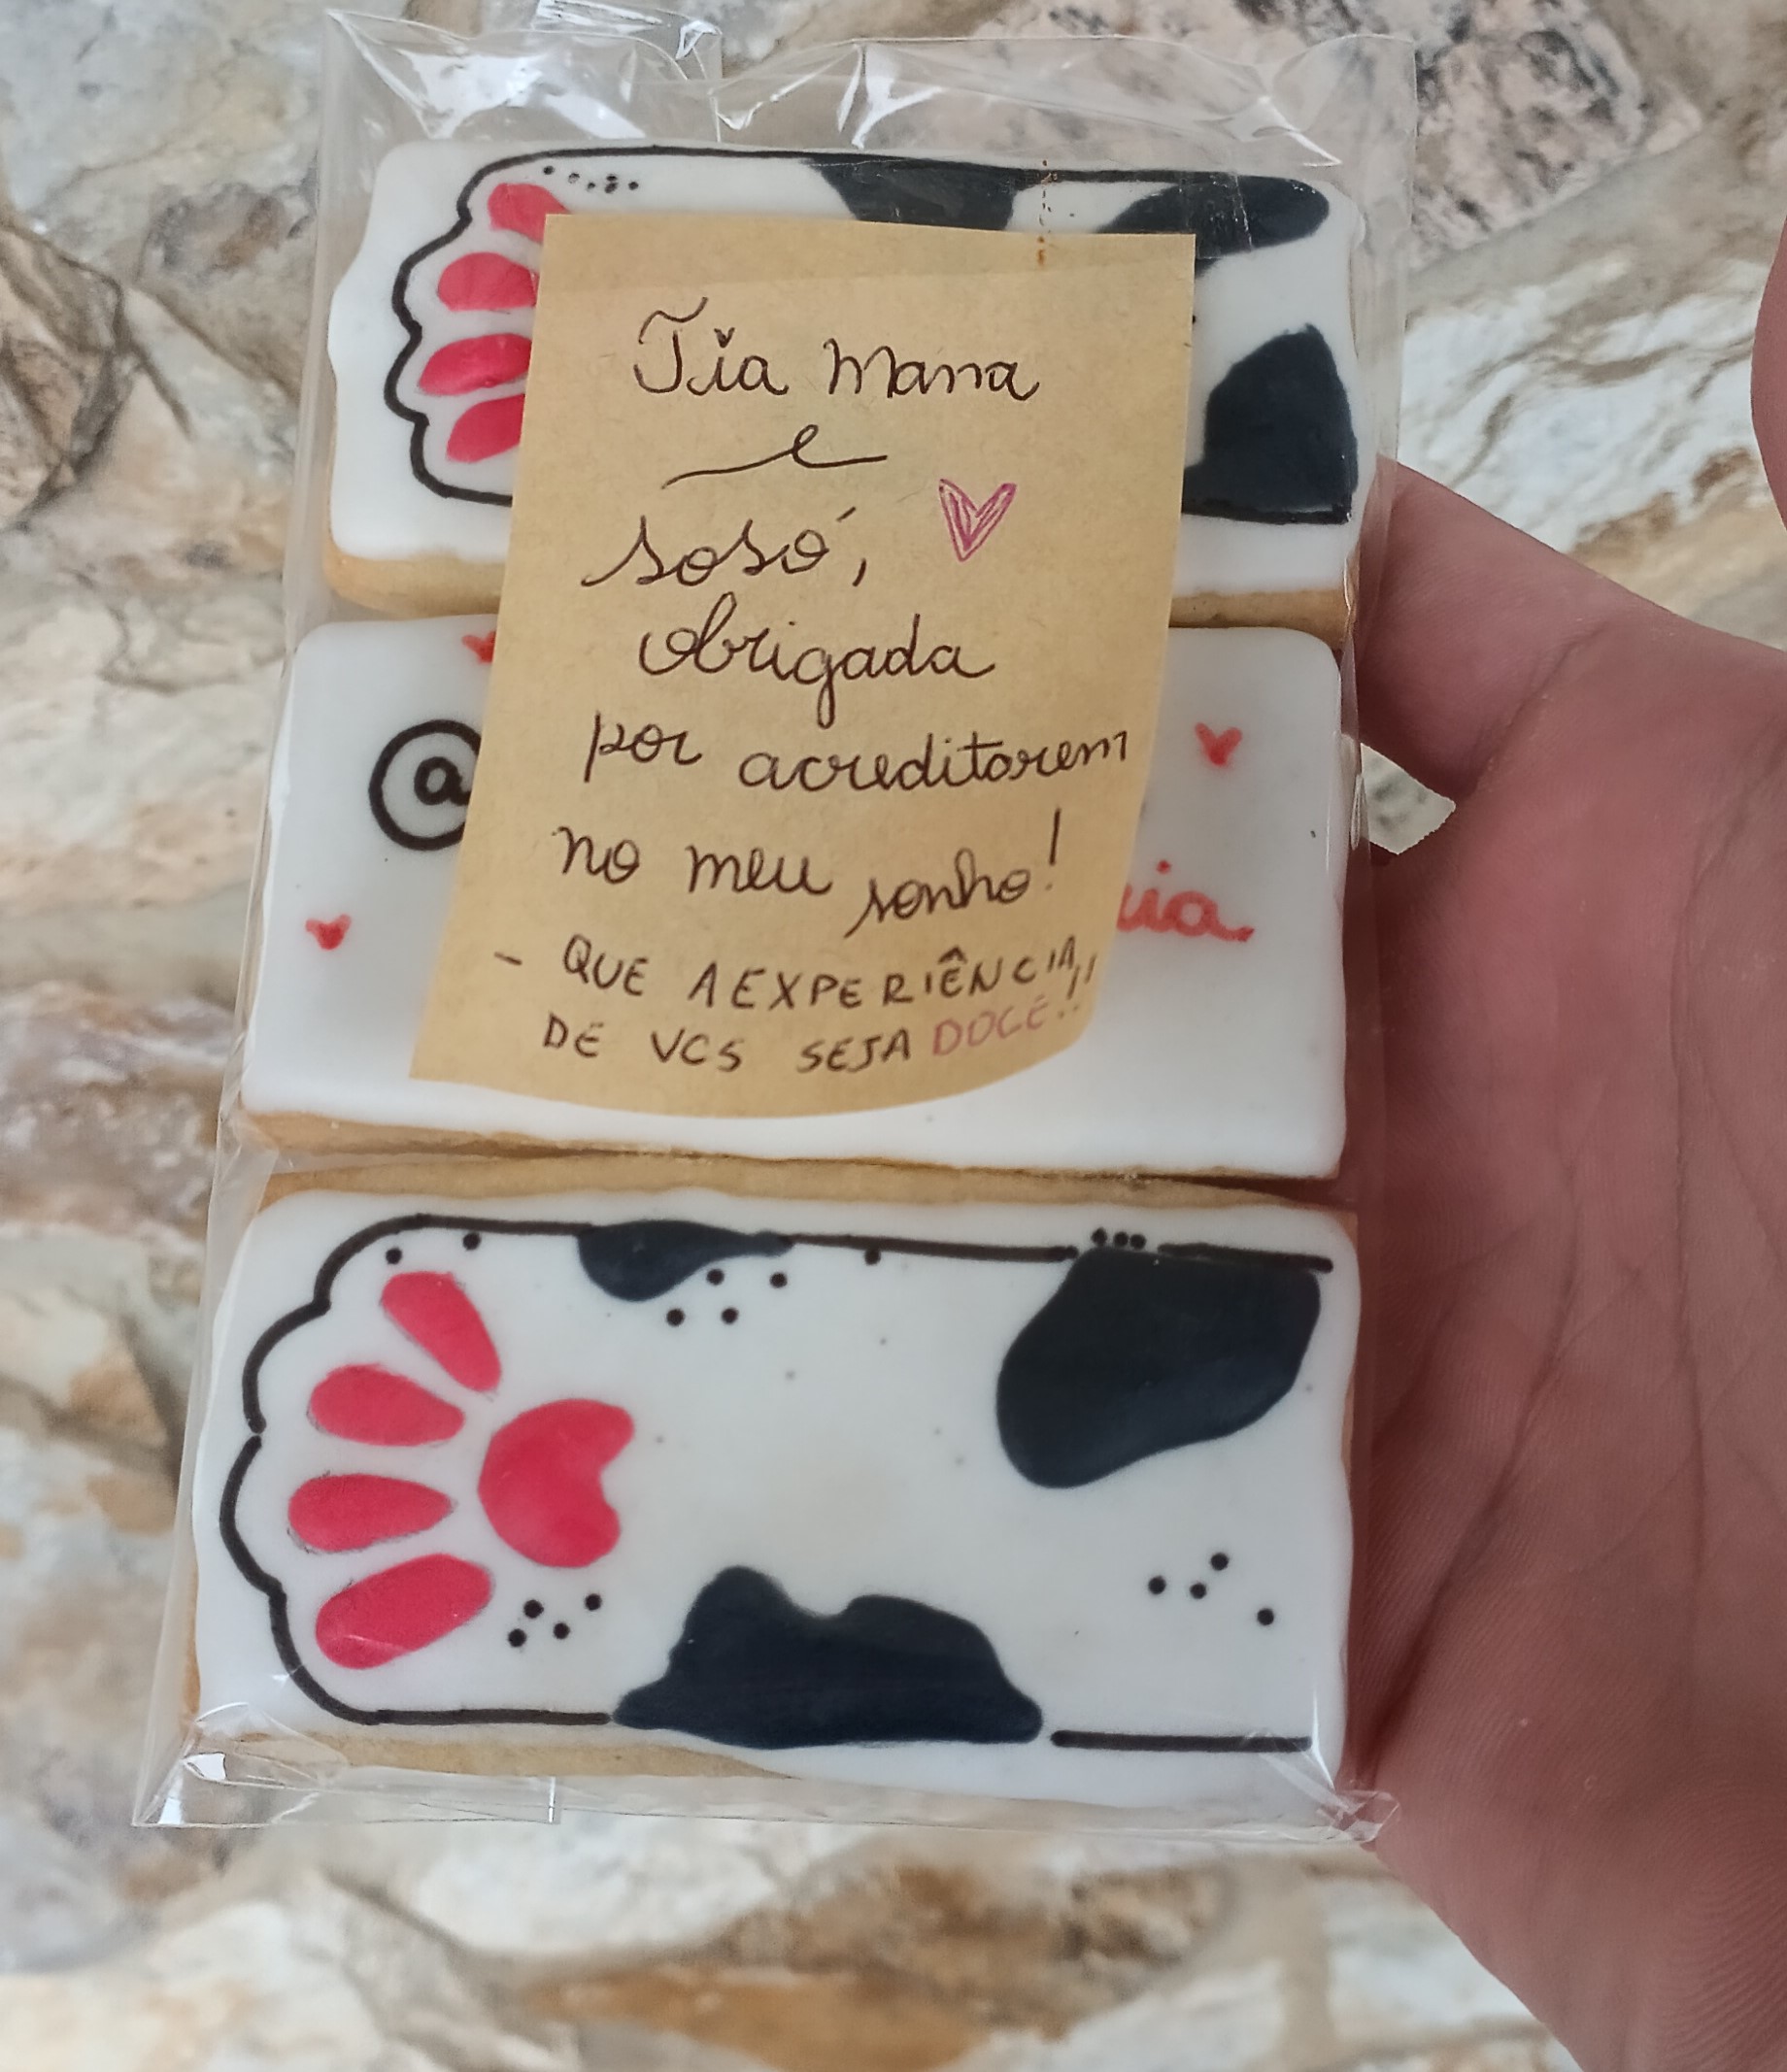 Tia Mana
e
sosó,
obrigada
por acreditarem
no meu sonho!
- QUE A EXPERIÊNCIA
DE VCS SEJA DOCE!!
@
ia